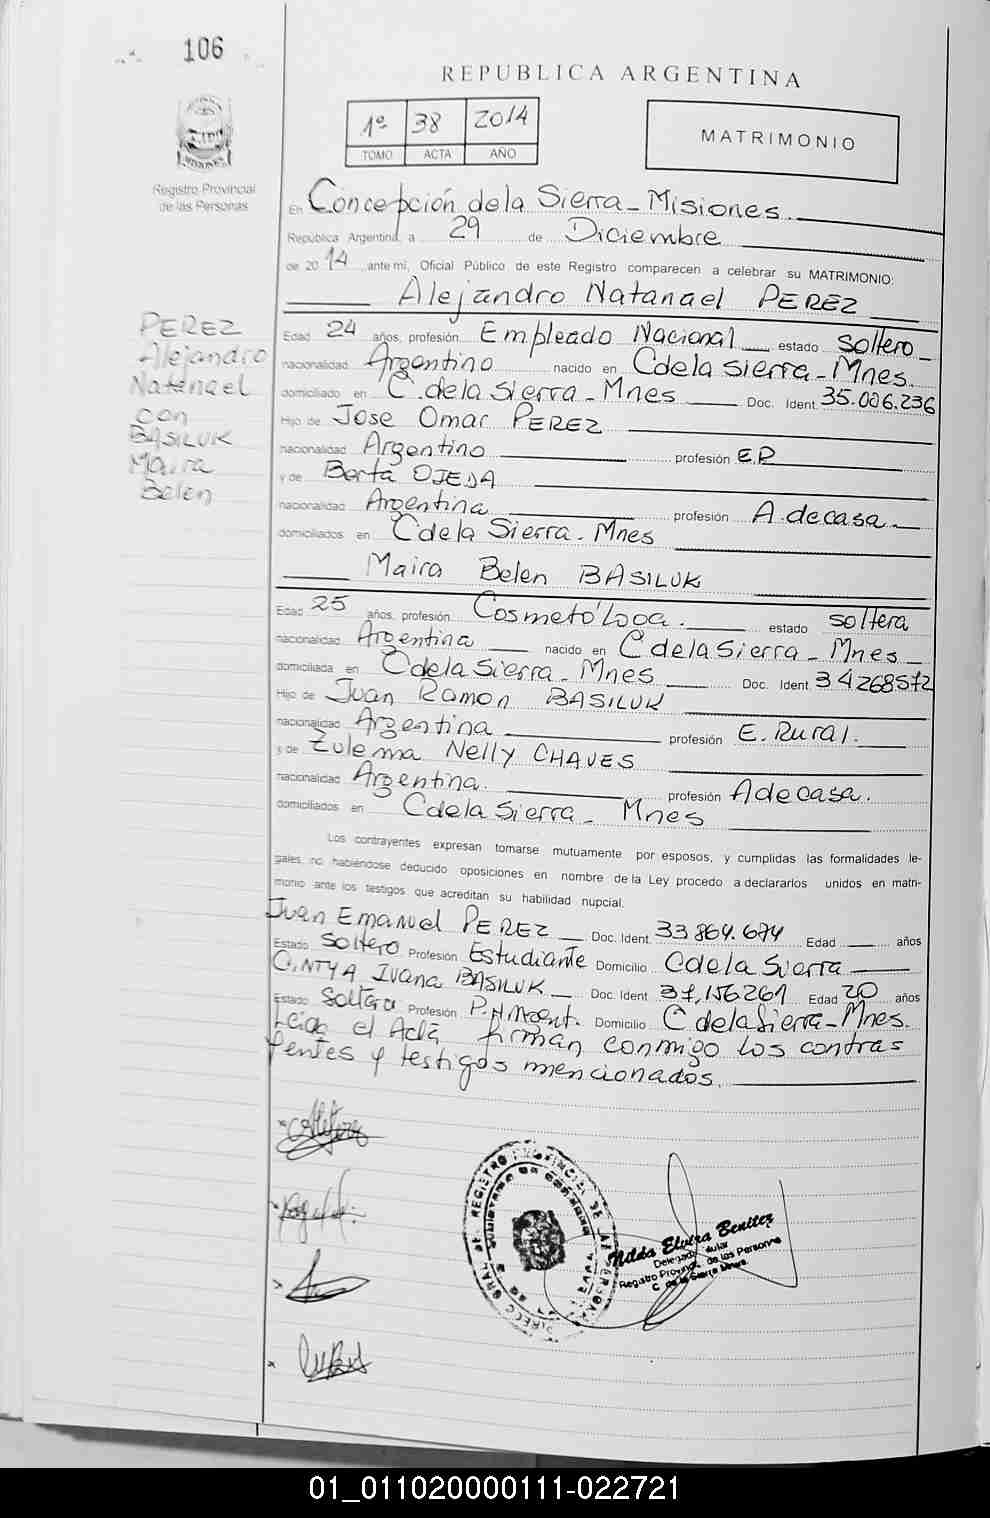 106
REPUBLICA ARGENTINA
1º 38 2014
TOMO ACTA AÑO
MATRIMONIO
MISIONES
Registro Provincial
de las Personas
En Concepción de la Sierra - Misiones
República Argentina, a 29 de Diciembre
de 2014 ante mí, Oficial Público de este Registro comparecen a celebrar su MATRIMONIO:
Alejandro Natanael PEREZ
PEREZ
Alejandro
Natanael
con
BASILUK
Maira
Belen
Edad 24 años, profesión Empleado Nacional estado soltero
nacionalidad Argentino nacido en C de la Sierra - Mnes.
domiciliado en C. de la Sierra - Mnes Doc. Ident. 35.006.236
Hijo de Jose Omar PEREZ
nacionalidad Argentino profesión E.P
y de Berta OJEDA
nacionalidad Argentina profesión A. de casa
domiciliados en C de la Sierra - Mnes
Maira Belen BASILUK
Edad 25 años, profesión Cosmetóloga. estado soltera
nacionalidad Argentina nacido en C de la Sierra - Mnes
domiciliada en C de la Sierra - Mnes Doc. Ident 34268572
Hijo de Juan Ramon BASILUK
nacionalidad Argentina profesión E. Rural.
y de Zulema Nelly CHAVES
nacionalidad Argentina. profesión A de casa.
domiciliados en C de la Sierra - Mnes
Los contrayentes expresan tomarse mutuamente por esposos, y cumplidas las formalidades le-
gales, no habiéndose deducido oposiciones en nombre de la Ley procedo a declararlos unidos en matri-
monio ante los testigos que acreditan su habilidad nupcial.
Juan Emanuel PEREZ Doc. Ident. 33.864.674 Edad años
Estado Soltero Profesión Estudiante Domicilio C de la Sierra
CINTYA Ivana BASILUK Doc. Ident 37,156261 Edad 20 años
Estado Soltera Profesión Domicilio C de la Sierra - Mnes.
Leida el Acta firman conmigo los contra
yentes y testigos mencionados.
Nilda Elvira Benitez
Delegado Titular
Registro Provincial de las Personas
C. de la Sierra Mnes.
01_011020000111-022721